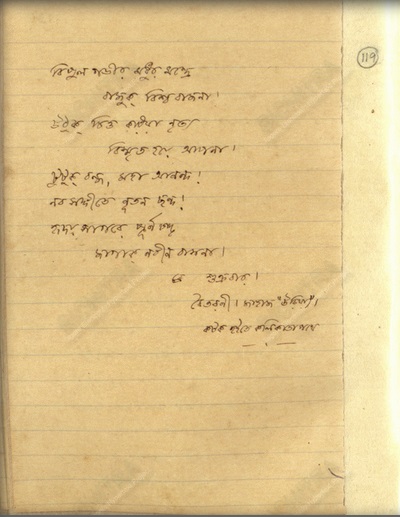 119
বিপুল গভীর মধুর মন্দ্রে
বাজুক্ বিশ্ব বাজনা!
উঠুক্ চিত্ত করিয়া নৃত্য
বিস্মৃত হয়ে আপনা!
টুটুক্ বন্ধ, মহা আনন্দ!
নব সঙ্গীতে নূতন ছন্দ!
হৃদয় সাগরে পূর্ণ চন্দ্র
জাগাক্ নবীন বাসনা!
শুক্রবার।
বৈতরণী। জাহাজ "উড়িষ্যা"।
কটক হইতে কলিকাতা পথে